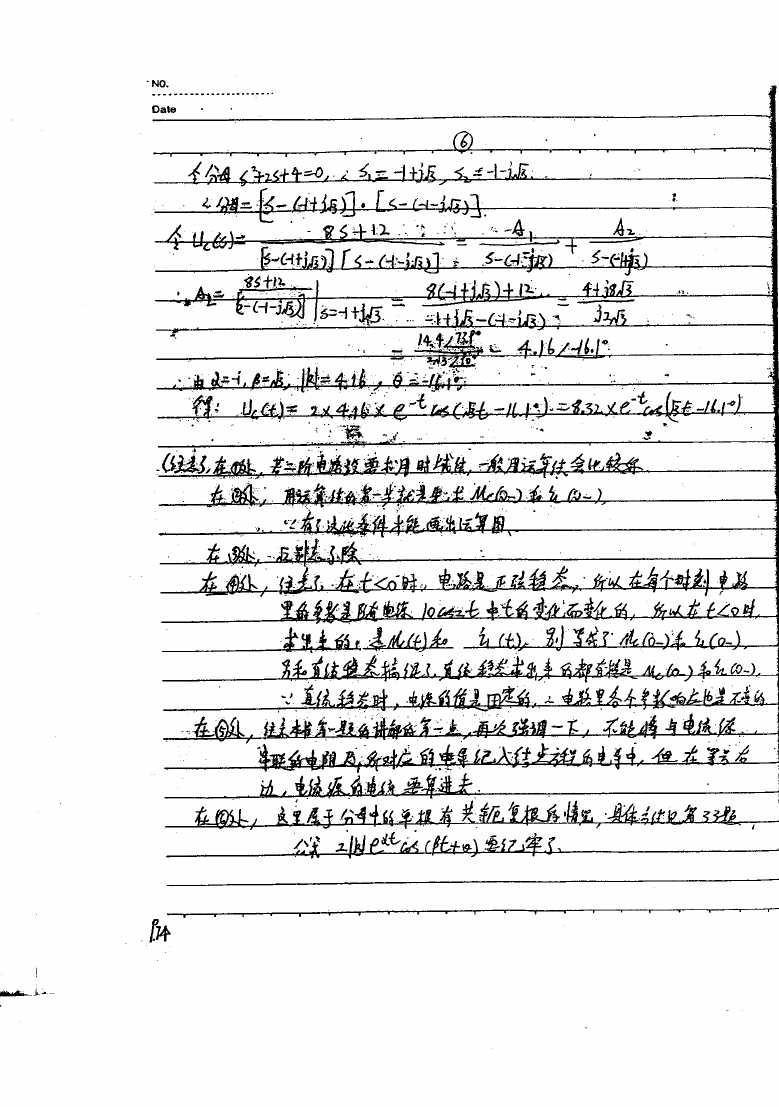 NO.
Date
⑥
令分母 s²+2s+4=0, ∴ s₁=-1+j√3, s₂=-1-j√3.
∴分母=[s-(-1+j√3)]·[s-(-1-j√3)]
令 Uc(s)= 8s+12 / [s-(-1+j√3)][s-(-1-j√3)] = A₁ / s-(-1-j√3) + A₂ / s-(-1+j√3)
∴ A₂= 8s+12 / [s-(-1-j√3)] |s=-1+j√3 = 8(-1+j√3)+12 / -1+j√3-(-1-j√3) = 4+j8√3 / j2√3
= 14.4∠73.9° / ∠90° = 4.16∠-16.1°
∴由α=-1, β=√3, |k|=4.16, θ=-16.1°
得: Uc(t)= 2×4.16×e^-t cos(√3t-16.1°)=8.32×e^-t cos(√3t-16.1°)
(注意了,在①处,若二阶电路设要求用时域法,一般用运算法会比较好
在②处, 用运算法的第一步就是要求 Uc(0-)和iL(0-),
∵有了这些条件才能画出运算图.
在③处,
在④处, 注意了,在t<0时,电路是正弦稳态,所以在每个时刻电路
里的参数是随着电源 10cos2t 中t的变化而变化的,所以在t<0时,
求出来的,是Uc(t)和 iL(t),别写成了Uc(0-)和iL(0-),
别和直流稳态搞混了,直流稳态求出来的都直接是Uc(0-)和iL(0-),
∵直流稳态时,电源的值是固定的,∴电路里各个参数的值也是不变的
在⑤处, 注意本书第一题的讲解的第一点,再次强调一下,不能将与电流源
串联的电阻及所对应的电导记入结点方程的电导中,但在等号右
边,电流源的电流要算进去.
在⑥处, 这里属于分母中的单根有共轭复根的情况,具体方法见第33题,
公式 2|k|e^αt cos(βt+θ)要记牢了.
P.74